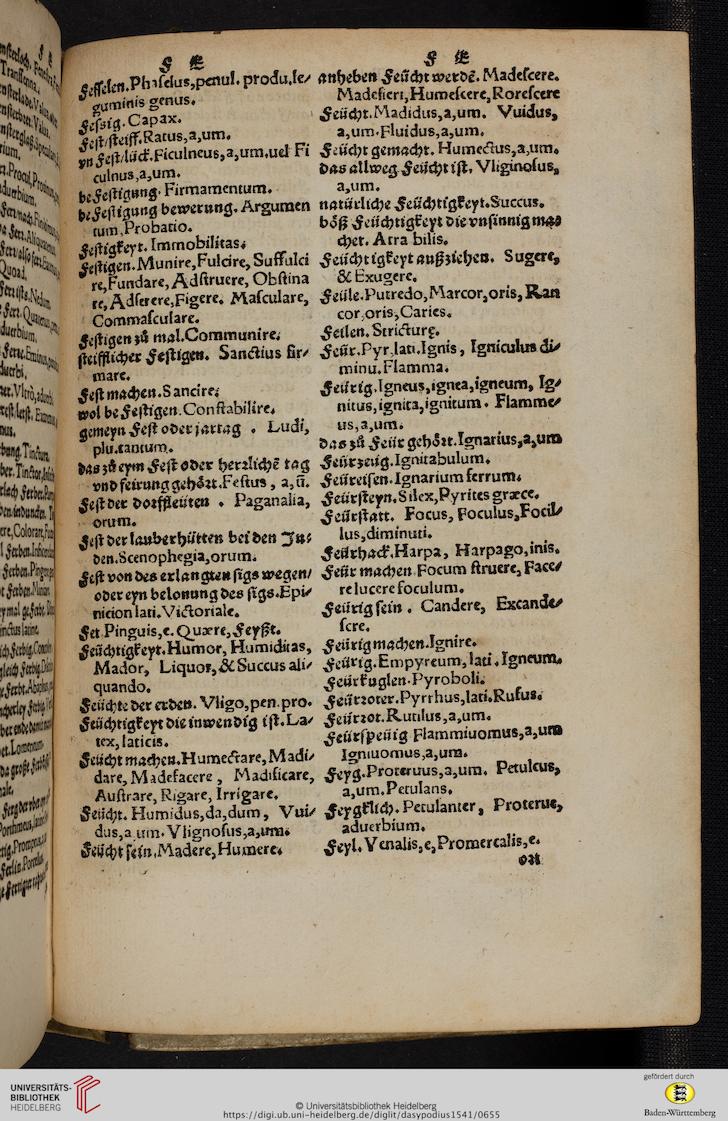 F E
Fesselen. Phaselus, penul. produ. le⸗
guminis genus.
Fessig. Capax.
Fest/steiff. Ratus, a, um.
vn Fest/lück. Ficulneus, a, um. uel Fi
culnus, a, um.
be Festigung. Firmamentum.
be Festigung bewerung. Argumen
tum, Probatio.
Festigkeyt. Immobilitas.
Festigen. Munire, Fulcire, Suffulci
re, Fundare, Adstruere, Obstina
re, Adserere, Figere. Masculare,
Commasculare.
Festigen zů mal. Communire.
steifflicher Festigen. Sanctius fir⸗
mare.
Fest machen. Sancire.
wol be Festigen. Constabilire.
gemeyn Fest oder jartag . Ludi,
plu. tantum.
das zů eym Fest oder herzlichē tag
vnd feirung gehört. Festus, a, ū.
Fest der dorffleüten . Paganalia,
orum.
Fest der lauberhütten bei den Ju⸗
den. Scenophegia, orum.
Fest von des erlangten sigs wegen/
oder eyn belonung des sigs. Epi⸗
nicion lati. Victoriale.
Fet Pinguis, e. Quære, Feyßt.
Feüchtigkeyt. Humor, Humiditas,
Mador, Liquor, & Succus ali⸗
quando.
Feüchte der erden. Vligo, pen. pro.
Feüchtigkeyt die inwendig ist. La⸗
tex, laticis.
Feücht machen. Humectare, Madi⸗
dare, Madefacere, Madificare,
Austrare, Rigare, Irrigare.
Feücht. Humidus, da, dum, Vui⸗
dus, a um. Vlignosus, a, um.
Feücht sein. Madere, Humere.
F E
anheben Feücht werdē. Madescere.
Madefieri, Humescere, Rorescere
Feücht. Madidus, a, um. Vuidus,
a, um. Fluidus, a, um.
Feücht gemacht. Humectus, a, um.
das allweg Feücht ist. Vliginosus,
a, um.
natürliche Feüchtigkeyt. Succus.
böß Feüchtigkeyt die vnsinnig ma⸗
chet. Atra bilis.
Feüchtigkeyt außziehen. Sugere,
& Exugere.
Feüle. Putredo, Marcor, oris, Ran
cor, oris, Caries.
Feilen. Stricture.
Feür. Pyr lati. Ignis, Igniculus di⸗
minu. Flamma.
Feürig. Igneus, ignea, igneum, Ig⸗
nitus, ignita, ignitum. Flamme⸗
us, a, um.
das zů Feür gehört. Ignarius, a, um
Feürzeüg. Ignitabulum.
Feüreisen. Ignarium ferrum.
Feürsteyn. Silex, Pyrites græce.
Feürstatt. Focus, Foculus, Focil⸗
lus, diminuti.
Feürhack. Harpa, Harpago, inis.
Feür machen. Focum struere, Face⸗
re lucere foculum.
Feürig sein . Candere, Excande⸗
scere.
Feürig machen. Ignire.
Feürig. Empyreum, lati. Igneum.
Feürkuglen. Pyroboli.
Feürroter. Pyrrhus, lati. Rufus.
Feürrot. Rutilus, a, um.
Feürspeüig Flammiuomus, a, um
Igniuomus, a, um.
Feyg. Proteruus, a, um. Petulcus,
a, um. Petulans.
Feygklich. Petulanter, Proterue,
aduerbium.
Feyl. Venalis, e, Promercalis, e.
UNIVERSITÄTS-
BIBLIOTHEK
HEIDELBERG
© Universitätsbibliothek Heidelberg
https://digi.ub.uni-heidelberg.de/diglit/dasypodius1541/0655
gefördert durch
Baden-Württemberg